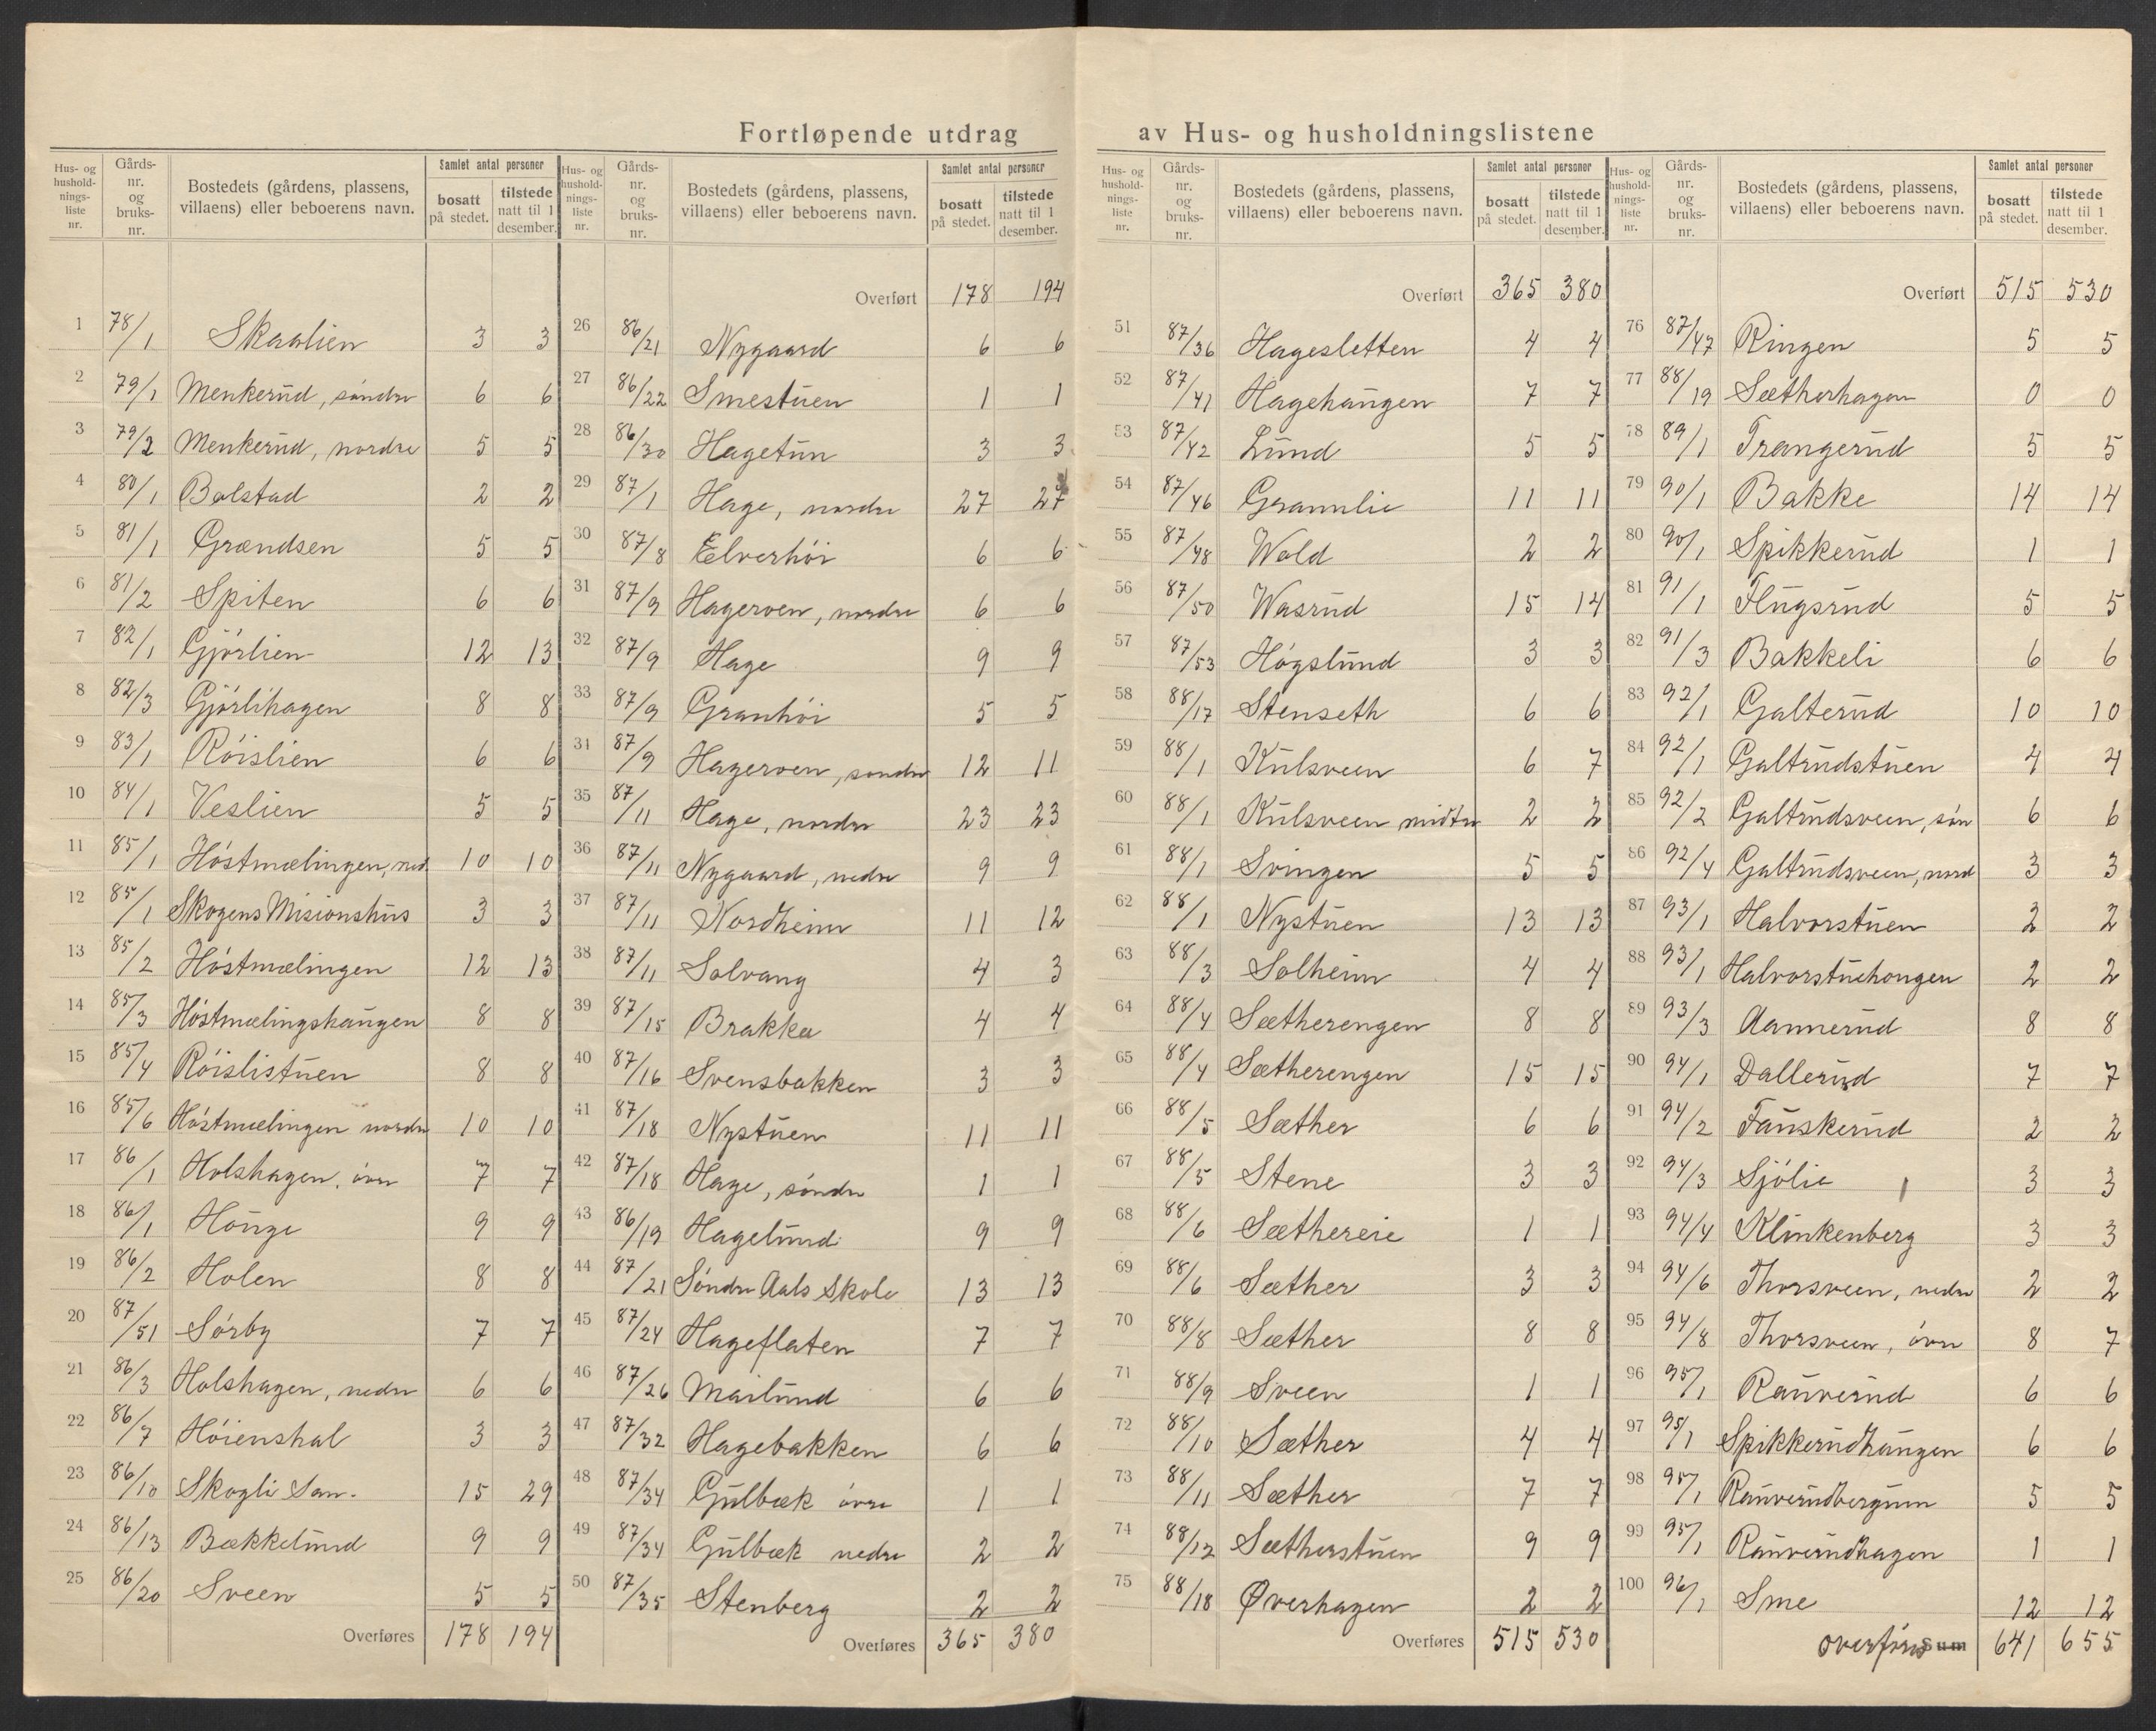 Fortløpende utdrag av Hus- og husholdningslistene
Hus- og hushold-nings-liste nr. Gårds-nr. og bruks-nr. Bostedets (gårdens, plassens, villaens) eller beboerens navn. Samlet antal personer bosatt på stedet. tilstede natt til 1 desember.
1 78/1 Skaalien 3 3
2 79/1 Menkerud, søndre 6 6
3 79/2 Menkerud, nordre 5 5
4 80/1 Bolstad 2 2
5 81/1 Grændsen 5 5
6 81/2 Spiten 6 6
7 82/1 Gjørlien 12 13
8 82/3 Gjørlihagen 8 8
9 83/1 Røislien 6 6
10 84/1 Veslien 5 5
11 85/1 Høstmælingen, ned. 10 10
12 85/1 Skogens Misionshus 3 3
13 85/2 Høstmælingen 12 13
14 85/3 Høstmælingshaugen 8 8
15 85/4 Røislistuen 8 8
16 85/6 Høstmælingen nordre 10 10
17 86/1 Holshagen, øvre 7 7
18 86/1 Houge 9 9
19 86/2 Holen 8 8
20 87/51 Sørby 7 7
21 86/3 Holshagen, nedre 6 6
22 86/7 Høienshal 3 3
23 86/10 Skogli San. 15 29
24 86/13 Bækkelund 9 9
25 86/20 Sveen 5 5
Overføres 178 194
Hus- og hushold-nings-liste nr. Gårds-nr. og bruks-nr. Bostedets (gårdens, plassens, villaens) eller beboerens navn. Samlet antal personer bosatt på stedet. tilstede natt til 1 desember.
Overført 178 194
26 86/21 Nygaard 6 6
27 86/22 Smestuen 1 1
28 86/30 Hagetun 3 3
29 87/1 Hage, nordre 27 27
30 87/8 Elverhøi 6 6
31 87/9 Hagerven, nordre 6 6
32 87/9 Hage 9 9
33 87/9 Granhøi 5 5
34 87/9 Hagerven, søndre 12 11
35 87/11 Hage, nordre 23 23
36 87/11 Nygaard, nedre 9 9
37 87/11 Nordheim 11 12
38 87/11 Solvang 4 3
39 87/15 Brakka 4 4
40 87/16 Svensbakken 3 3
41 87/18 Nystuen 11 11
42 87/18 Hage, søndre 1 1
43 86/19 Hagelund 9 9
44 87/21 Søndre Aals Skole 13 13
45 87/24 Hageflaten 7 7
46 87/26 Mailund 6 6
47 87/32 Hagebakken 6 6
48 87/34 Gulbæk øvre 1 1
49 87/34 Gulbæk nedre 2 2
50 87/35 Stenberg 2 2
Overføres 365 380
Hus- og hushold-nings-liste nr. Gårds-nr. og bruks-nr. Bostedets (gårdens, plassens, villaens) eller beboerens navn. Samlet antal personer bosatt på stedet. tilstede natt til 1 desember.
Overført 365 380
51 87/36 Hagesletten 4 4
52 87/41 Hagehaugen 7 7
53 87/42 Lund 5 5
54 87/46 Grannlie 11 11
55 87/48 Wold 2 2
56 87/50 Wasrud 15 14
57 87/53 Høgslund 3 3
58 88/17 Stenseth 6 6
59 88/1 Kulsveen 6 7
60 88/1 Kulsveen midtre 2 2
61 88/1 Svingen 5 5
62 88/1 Nystuen 13 13
63 88/3 Solheim 4 4
64 88/4 Sætherengen 8 8
65 88/4 Sætherengen 15 15
66 88/5 Sæther 6 6
67 88/5 Stene 3 3
68 88/6 Sæthereie 1 1
69 88/6 Sæther 3 3
70 88/8 Sæther 8 8
71 88/9 Sveen 1 1
72 88/10 Sæther 4 4
73 88/11 Sæther 7 7
74 88/12 Sætherstuen 9 9
75 88/18 Øverhagen 2 2
Overføres 515 530
Hus- og hushold-nings-liste nr. Gårds-nr. og bruks-nr. Bostedets (gårdens, plassens, villaens) eller beboerens navn. Samlet antal personer bosatt på stedet. tilstede natt til 1 desember.
Overført 515 530
76 87/47 Ringen 5 5
77 88/19 Sætherhagen 0 0
78 89/1 Trangerud 5 5
79 90/1 Bakke 14 14
80 90/1 Spikkerud 1 1
81 91/1 Flugsrud 5 5
82 91/3 Bakkeli 6 6
83 92/1 Galterud 10 10
84 92/1 Galtrudstuen 4 4
85 92/2 Galtrudsveen, søn 6 6
86 92/4 Galtrudsveen, nord 3 3
87 93/1 Halvorstuen 2 2
88 93/1 Halvorstuehougen 2 2
89 93/3 Aannerud 8 8
90 94/1 Dallerud 7 7
91 94/2 Fauskerud 2 2
92 94/3 Sjølie 3 3
93 94/4 Klinkenberg 3 3
94 94/6 Thorsveen, nedre 2 2
95 94/8 Thorsveen, øvre 8 7
96 95/1 Rauverud 6 6
97 95/1 Spikkerudhaugen 6 6
98 95/1 Rauverudbergum 5 5
99 95/1 Rauverudhagen 1 1
100 96/1 Sme 12 12
overføres Sum 641 655